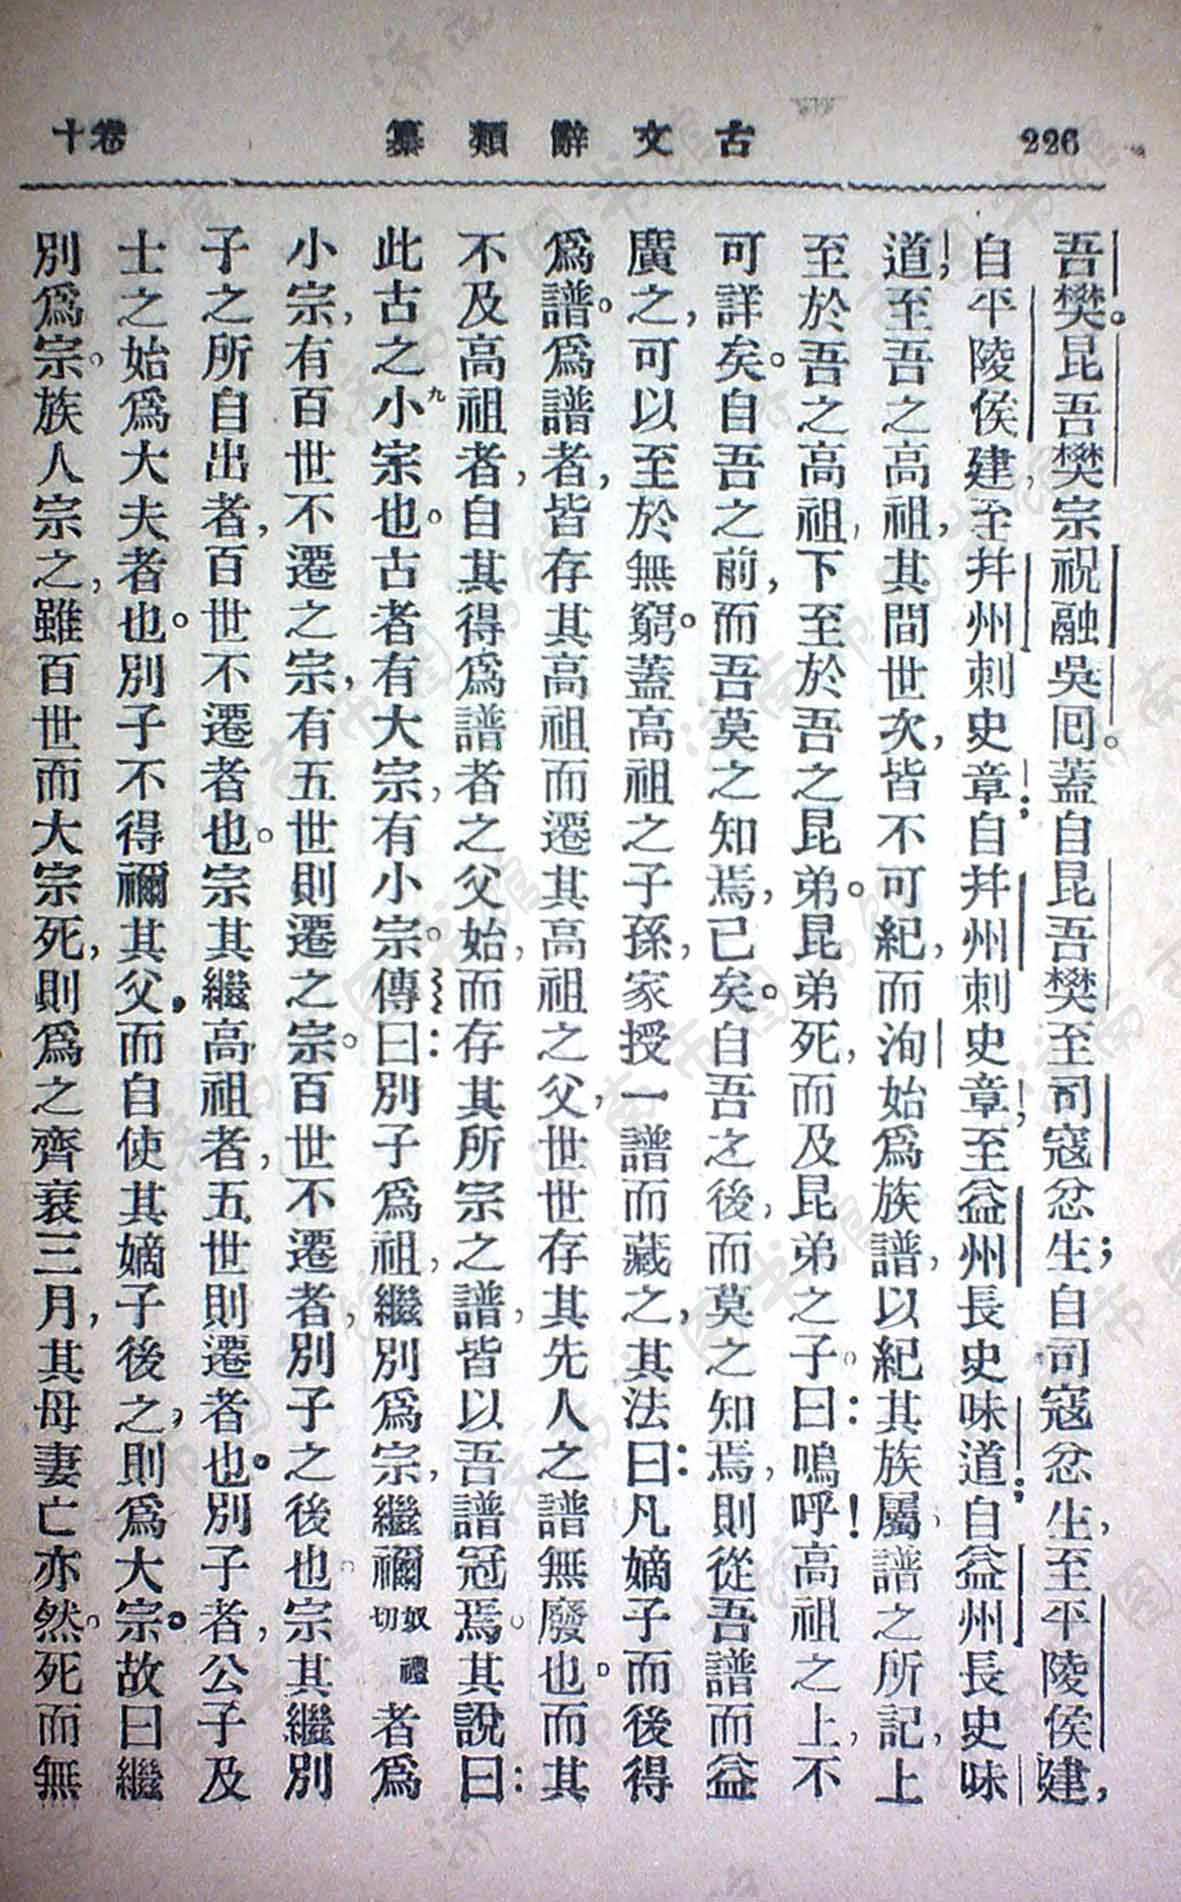 226
古文辭類纂
卷十
吾樊。昆吾樊宗祝融吳囘。蓋自昆吾樊至司寇忿生；自司寇忿生，至平陵侯建，
自平陵侯建，至幷州刺史章；自幷州刺史章，至益州長史味道；自益州長史味
道，至吾之高祖，其間世次，皆不可紀，而洵始爲族譜，以紀其族屬。譜之所記，上
至於吾之高祖，下至於吾之昆弟。昆弟死，而及昆弟之子。曰：嗚呼！高祖之上，不
可詳矣。自吾之前，而吾莫之知焉，已矣。自吾之後，而莫之知焉，則從吾譜而益
廣之，可以至於無窮。蓋高祖之子孫，家授一譜而藏之，其法曰：凡嫡子而後得
爲譜。爲譜者，皆存其高祖而遷其高祖之父，世世存其先人之譜無廢也。而其
不及高祖者，自其得爲譜者之父始，而存其所宗之譜，皆以吾譜冠焉。其說曰：
此古之小九宗也。古者有大宗，有小宗。傳曰：別子爲祖，繼別爲宗，繼禰奴禮切者爲
小宗，有百世不遷之宗，有五世則遷之宗。百世不遷者，別子之後也。宗其繼別
子之所自出者，百世不遷者也。宗其繼高祖者，五世則遷者也。別子者，公子及
士之始爲大夫者也。別子不得禰其父，而自使其嫡子後之，則爲大宗。故曰繼
別爲宗。族人宗之，雖百世而大宗死，則爲之齊衰三月，其母妻亡亦然。死而無